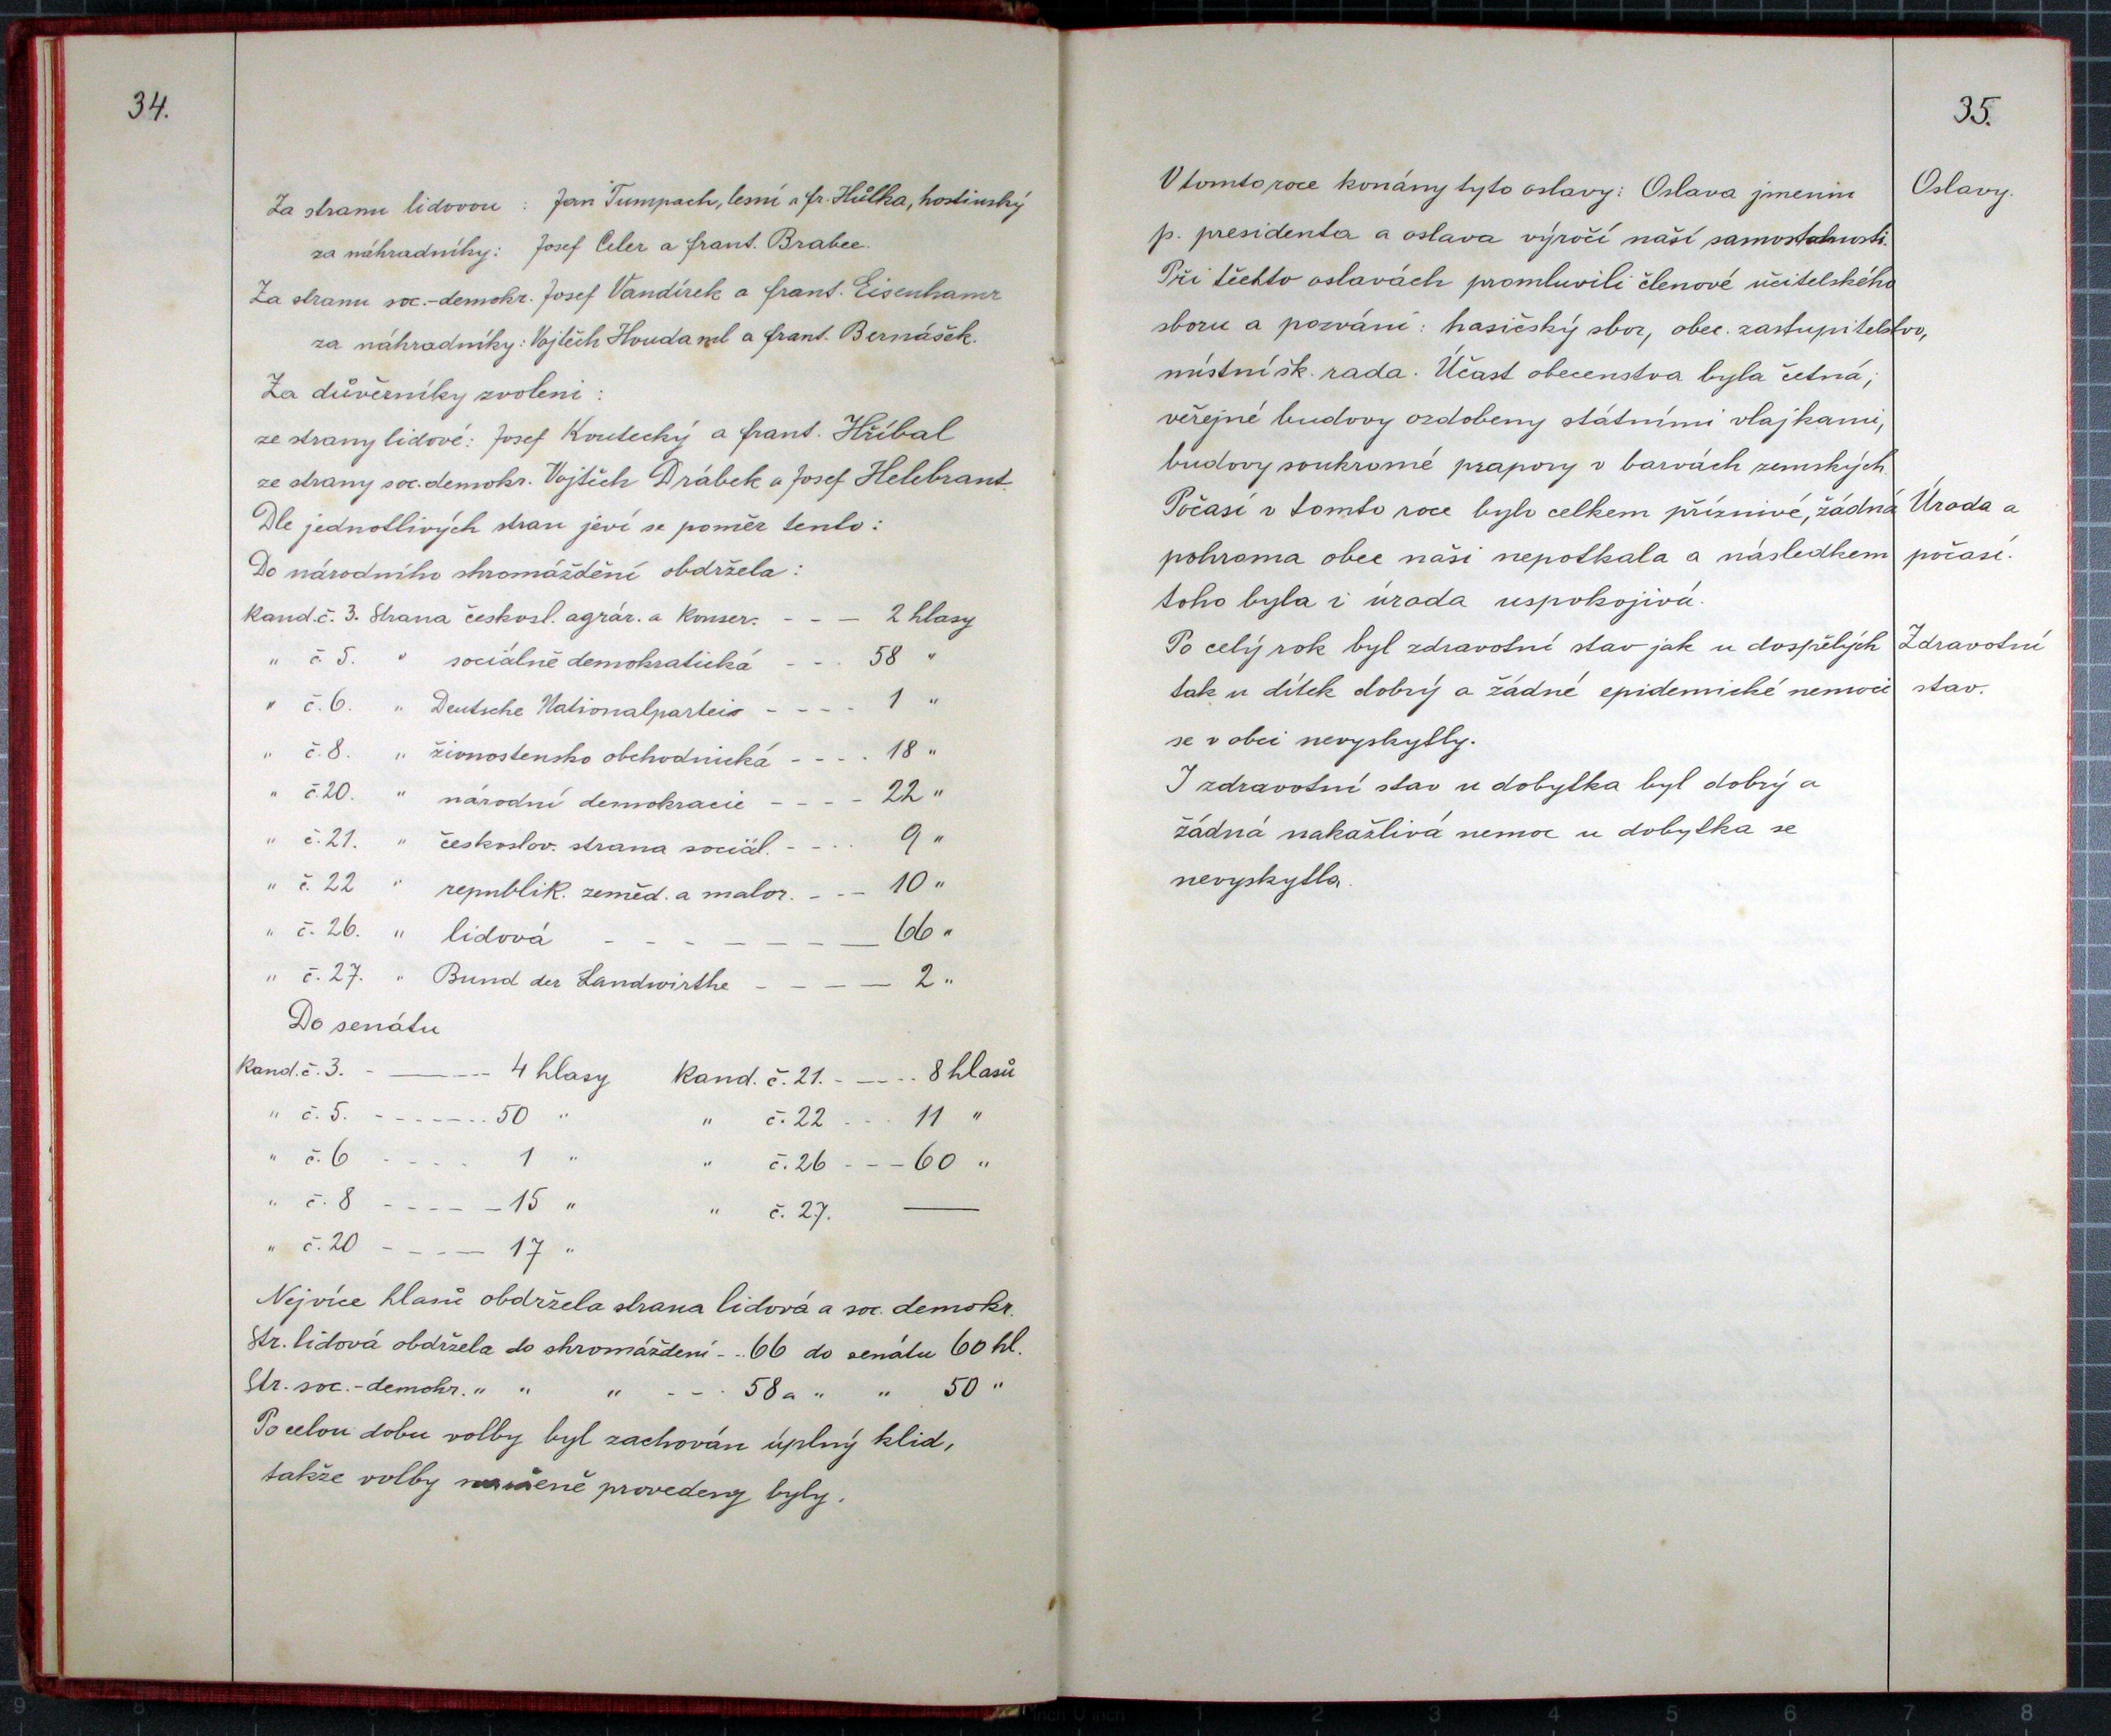 34.
Za stranu lidovou : Jan Tumpach, lesní a fr. Hůlka, hostinský
za náhradníky: Josef Celer a frant. Brabec.
Za stranu soc.-demokr. Josef Vandírek a frant. Eisenhamr
za náhradníky: Vojtěch Houda ml a frant. Bernášek.
Za důvěrníky zvoleni :
ze strany lidové: Josef Koutecký a frant. Hříbal
ze strany soc. demokr. Vojtěch Drábek a Josef Helebrant.
Dle jednotlivých stran jeví se poměr tento :
Do národního shromáždění obdržela :
Kand. č. 3. Strana českosl. agrár. a konser. - - - 2 hlasy
" č. 5. " sociálně demokratická - - - 58 "
" č. 6. " Deutsche Nationalparteis - - - - 1 "
" č. 8. " živnostensko obchodnická - - - - 18 "
" č. 20. " národní demokracie - - - - 22 "
" č. 21. " českoslov. strana sociál. - - - - 9 "
" č. 22 " republik. zeměd. a malor. - - - 10 "
" č. 26. " lidová - - - - - - - 66 "
" č. 27. " Bund der Landwirthe - - - - 2 "
Do senátu
Kand. č. 3. - ---- 4 hlasy Kand. č. 21. - ---- 8 hlasů
" č. 5. - - - - - - - 50 " " č. 22 - - - 11 "
" č. 6 - - - - 1 " " č. 26 - - - 60 "
" č. 8 - - - - - 15 " " č. 27. —
" č. 20 - - - - 17 "
Nejvíce hlasů obdržela strana lidová a soc. demokr.
Str. lidová obdržela do shromáždení - - 66 do senátu 60 hl.
Str. soc.-demokr. " " " - - - 58 a " " 50 "
Po celou dobu volby byl zachován úplný klid,
takže volby provedeny byly.
35.
V tomto roce konány tyto oslavy: Oslava jmenin
Oslavy.
p. presidenta a oslava výročí naší samostatnosti.
Při těchto oslavách promluvili členové učitelského
sboru a pozváni : hasičský sbor, obec. zastupitelstvo,
místní šk. rada. Účast obecenstva byla četná;
veřejné budovy ozdobeny státními vlajkami,
budovy soukromé prapory v barvách zemských.
Počasí v tomto roce bylo celkem příznivé, žádná
Úroda a
pohroma obec naši nepotkala a následkem
počasí.
toho byla i úroda uspokojivá.
Po celý rok byl zdravotní stav jak u dospělých
Zdravotní
tak u dítek dobrý a žádné epidemické nemoci
stav.
se v obci nevyskytly.
I zdravotní stav u dobytka byl dobrý a
žádná nakažlivá nemoc u dobytka se
nevyskytla.